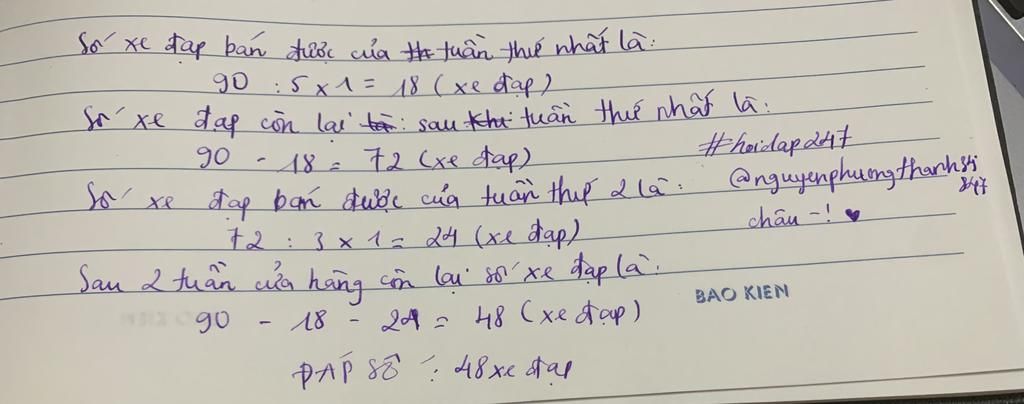 Số xe đạp bán được của tuần thứ nhất là:
90 : 5 x 1 = 18 (xe đạp)
Số xe đạp còn lại sau tuần thứ nhất là:
90 - 18 = 72 (xe đạp)
#hoidap247
Số xe đạp bán được của tuần thứ 2 là:
@nguyenphuongthanh
72 : 3 x 1 = 24 (xe đạp)
châu -! ♥
Sau 2 tuần cửa hàng còn lại số xe đạp là:
BAO KIEN
90 - 18 - 24 = 48 (xe đạp)
ĐÁP SỐ : 48 xe đạp